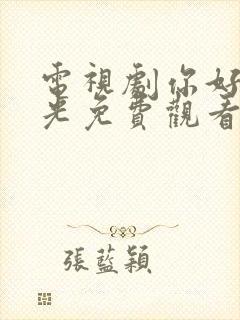 電視劇你好
光免費觀看
張藍穎